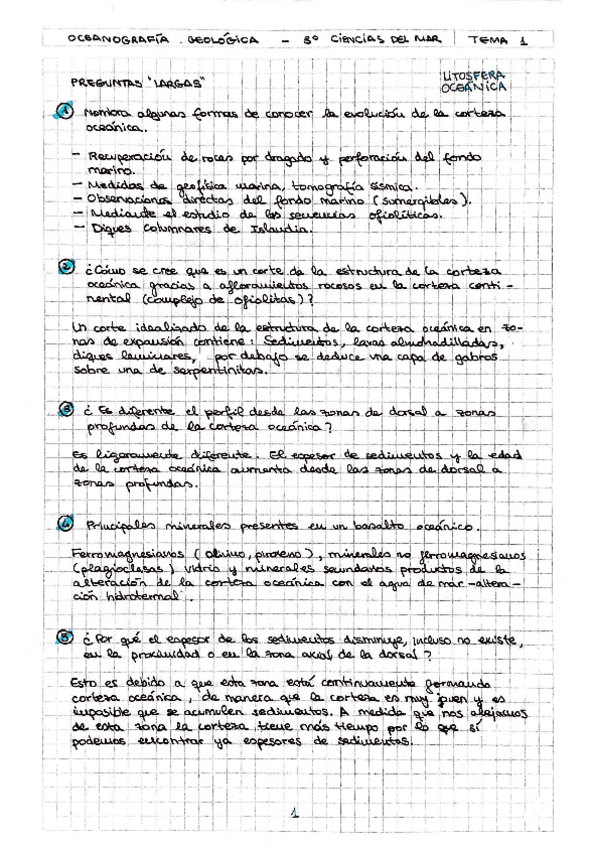 OCEANOGRAFÍA GEOLÓGICA - 3º CIENCIAS DEL MAR TEMA 1
PREGUNTAS "LARGAS"
LITOSFERA
OCEÁNICA
1 Nombra algunas formas de conocer la evolución de la corteza
oceánica.
- Recuperación de rocas por dragado y perforación del fondo
marino.
- Medidas de geofísica marina, tomografía sísmica.
- Observaciones directas del fondo marino (sumergibles).
- Mediante el estudio de las secuencias ofiolíticas.
- Diques columnares de Islandia.
2 ¿Cómo se cree que es un corte de la estructura de la corteza
oceánica gracias a afloramientos rocosos en la corteza conti-
nental (complejo de ofiolitas)?
Un corte idealizado de la estructura de la corteza oceánica en zo-
nas de expansión contiene: Sedimentos, lavas almohadilladas,
diques laminares, por debajo se deduce una capa de gabros
sobre una de serpentinitas.
3 ¿Es diferente el perfil desde las zonas de dorsal a zonas
profundas de la corteza oceánica?
Es ligeramente diferente. El espesor de sedimentos y la edad
de la corteza oceánica aumenta desde las zonas de dorsal a
zonas profundas.
4 Principales minerales presentes en un basalto oceánico.
Ferromagnesianos (olivino, piroxeno), minerales no ferromagnesianos
(plagioclasas) vidrio y minerales secundarios productos de la
alteración de la corteza oceánica con el agua de mar -altera-
ción hidrotermal-.
5 ¿Por qué el espesor de los sedimentos disminuye, incluso no existe,
en la proximidad o en la zona axial de la dorsal?
Esto es debido a que esta zona está continuamente formando
corteza oceánica, de manera que la corteza es muy joven y es
imposible que se acumulen sedimentos. A medida que nos alejamos
de esta zona la corteza tiene más tiempo por lo que sí
podemos encontrar ya espesores de sedimentos.
1